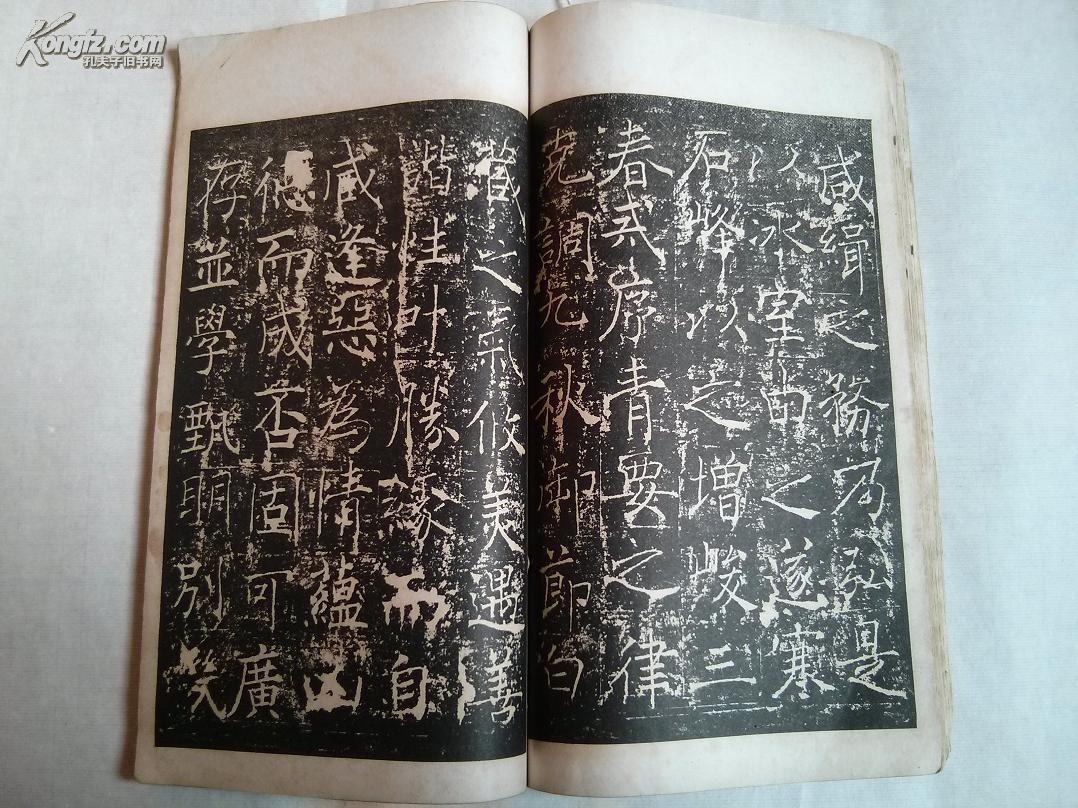 Kongfz.com
孔夫子旧书网
咸緝之務乃弘是
以冰室由之遂寒
石峰以之增峻三
春弍序青要之律
克調九秋御節白
藏之氣攸美遇善
諧性叶勝緣而自
咸逢惡為情蘊凶
德而咸否固可廣
存並學甄明別矣